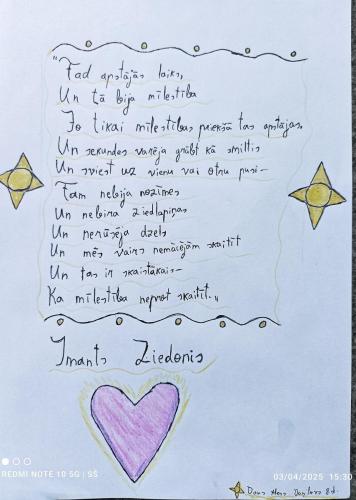 "Tad apstājās laiks,
Un tā bija mīlestība
Jo tikai mīlestības priekšā tas apstājas.
Un sekundes varēja grābt kā smiltis
Un sviest uz vienu vai otru pusi–
Tam nebija nozīmes
Un nebira ziedlapiņas
Un nerūsēja dzels
Un mēs vairs nemācējām skaitīt
Un tas ir skaistākais–
Ka mīlestība neprot skaitīt."
Imants Ziedonis
REDMI NOTE 10 5G | SŠ
03/04/2025 15:30
8d